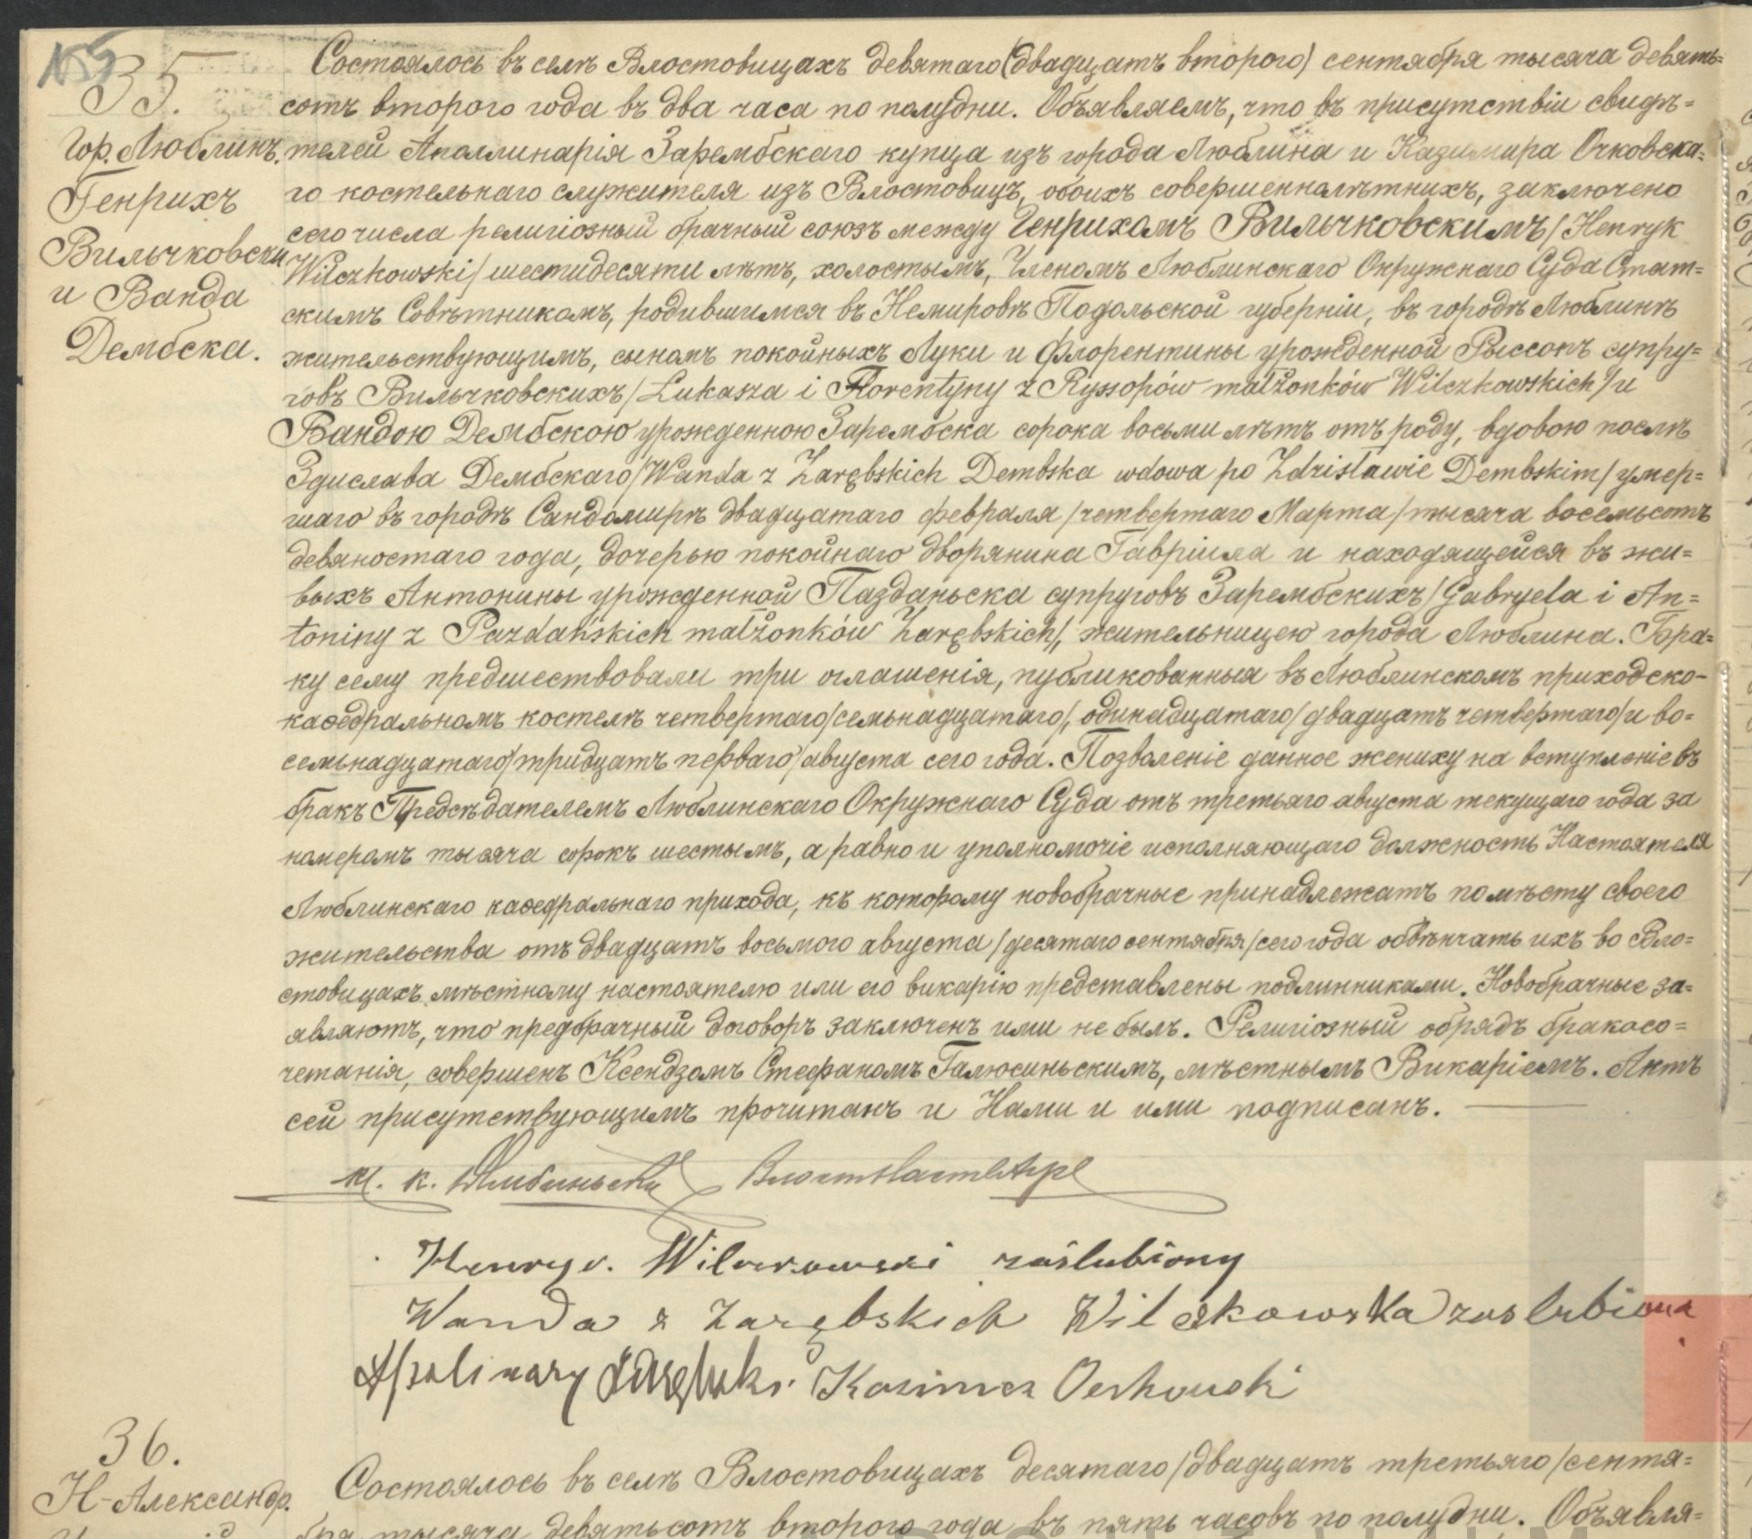 35.
Гор. Люблинъ.
Генрихъ
Вильчковски
и Ванда
Дембска.
Состоялось въ селѣ Влостовицахъ девятаго (двадцать второго) сентября тысяча девять=
сотъ второго года въ два часа по полудни. Объявляемъ, что въ присутствіи свидѣ=
телей Аполлинарія Зарембскаго купца изъ города Люблина и Казимира Очковска=
го костельнаго служителя изъ Влостовицъ, обоихъ совершеннолѣтнихъ, заключено
сего числа религіозный брачный союзъ между Генрихомъ Вильчковскимъ / Henryk
Wilczkowski / шестидесяти лѣтъ, холостымъ, Членомъ Люблинскаго Окружнаго Суда Стат=
скимъ Совѣтникомъ, родившимся въ Немировѣ Подольской губерніи, въ городѣ Люблинѣ
жительствующимъ, сыномъ покойныхъ Луки и Флорентины урожденной Рыссопъ супру=
говъ Вильчковскихъ / Łukasza i Florentyny z Ryssopów małżonków Wilczkowskich / и
Вандою Дембскою урожденною Зарембска сорока восьми лѣтъ отъ роду, вдовою послѣ
Здислава Дембскаго / Wanda z Zarębskich Dembska wdowa po Zdzisławie Dembskim / умер=
шаго въ городѣ Сандомирѣ двадцатаго февраля / четвертаго Марта / тысяча восемьсотъ
девяностаго года, дочерью покойнаго дворянина Гавріила и находящейся въ жи=
выхъ Антонины урожденной Паздяньска супруговъ Зарембскихъ / Gabryela i An=
toniny z Pazdańskich małżonków Zarębskich /, жительницею города Люблина. Бра=
ку сему предшествовали три оглашенія, публикованныя въ Люблинскомъ приходско-
каѳедральномъ костелѣ четвертаго / семьнадцатаго /, одинадцатаго / двадцать четвертаго / и во=
семьнадцатаго / тридцать перваго / августа сего года. Позволеніе данное жениху на вступленіе въ
бракъ Предсѣдателемъ Люблинскаго Окружнаго Суда отъ третьяго августа текущаго года за
номеромъ тысяча сорокъ шестымъ, а равно и уполномочіе исполняющаго должность Настоятеля
Люблинскаго каѳедральнаго прихода, къ которому новобрачные принадлежатъ по мѣсту своего
жительства отъ двадцать восьмого августа / десятаго сентября / сего года обвѣнчать ихъ во Вло=
стовицахъ мѣстному настоятелю или его викарію представлены подлинниками. Новобрачные за=
являютъ, что предбрачный договоръ заключенъ ими не былъ. Религіозный обрядъ бракосо=
четанія, совершенъ Ксендзомъ Стефаномъ Галюсиньскимъ, мѣстнымъ Викаріемъ. Актъ
сей присутствующимъ прочитанъ и Нами и ими подписанъ.
Henryk Wilczkowski zaślubiony
Wanda z Zarębskich Wilczkowska zaslubiona
Apolinary Zarębski Kazimierz Oczkowski
36.
Н-Александр.
Состоялось въ селѣ Влостовицахъ десятаго / двадцать третьяго / сентя=
бря тысяча девятьсотъ второго года въ пять часовъ по полудни. Объявля=